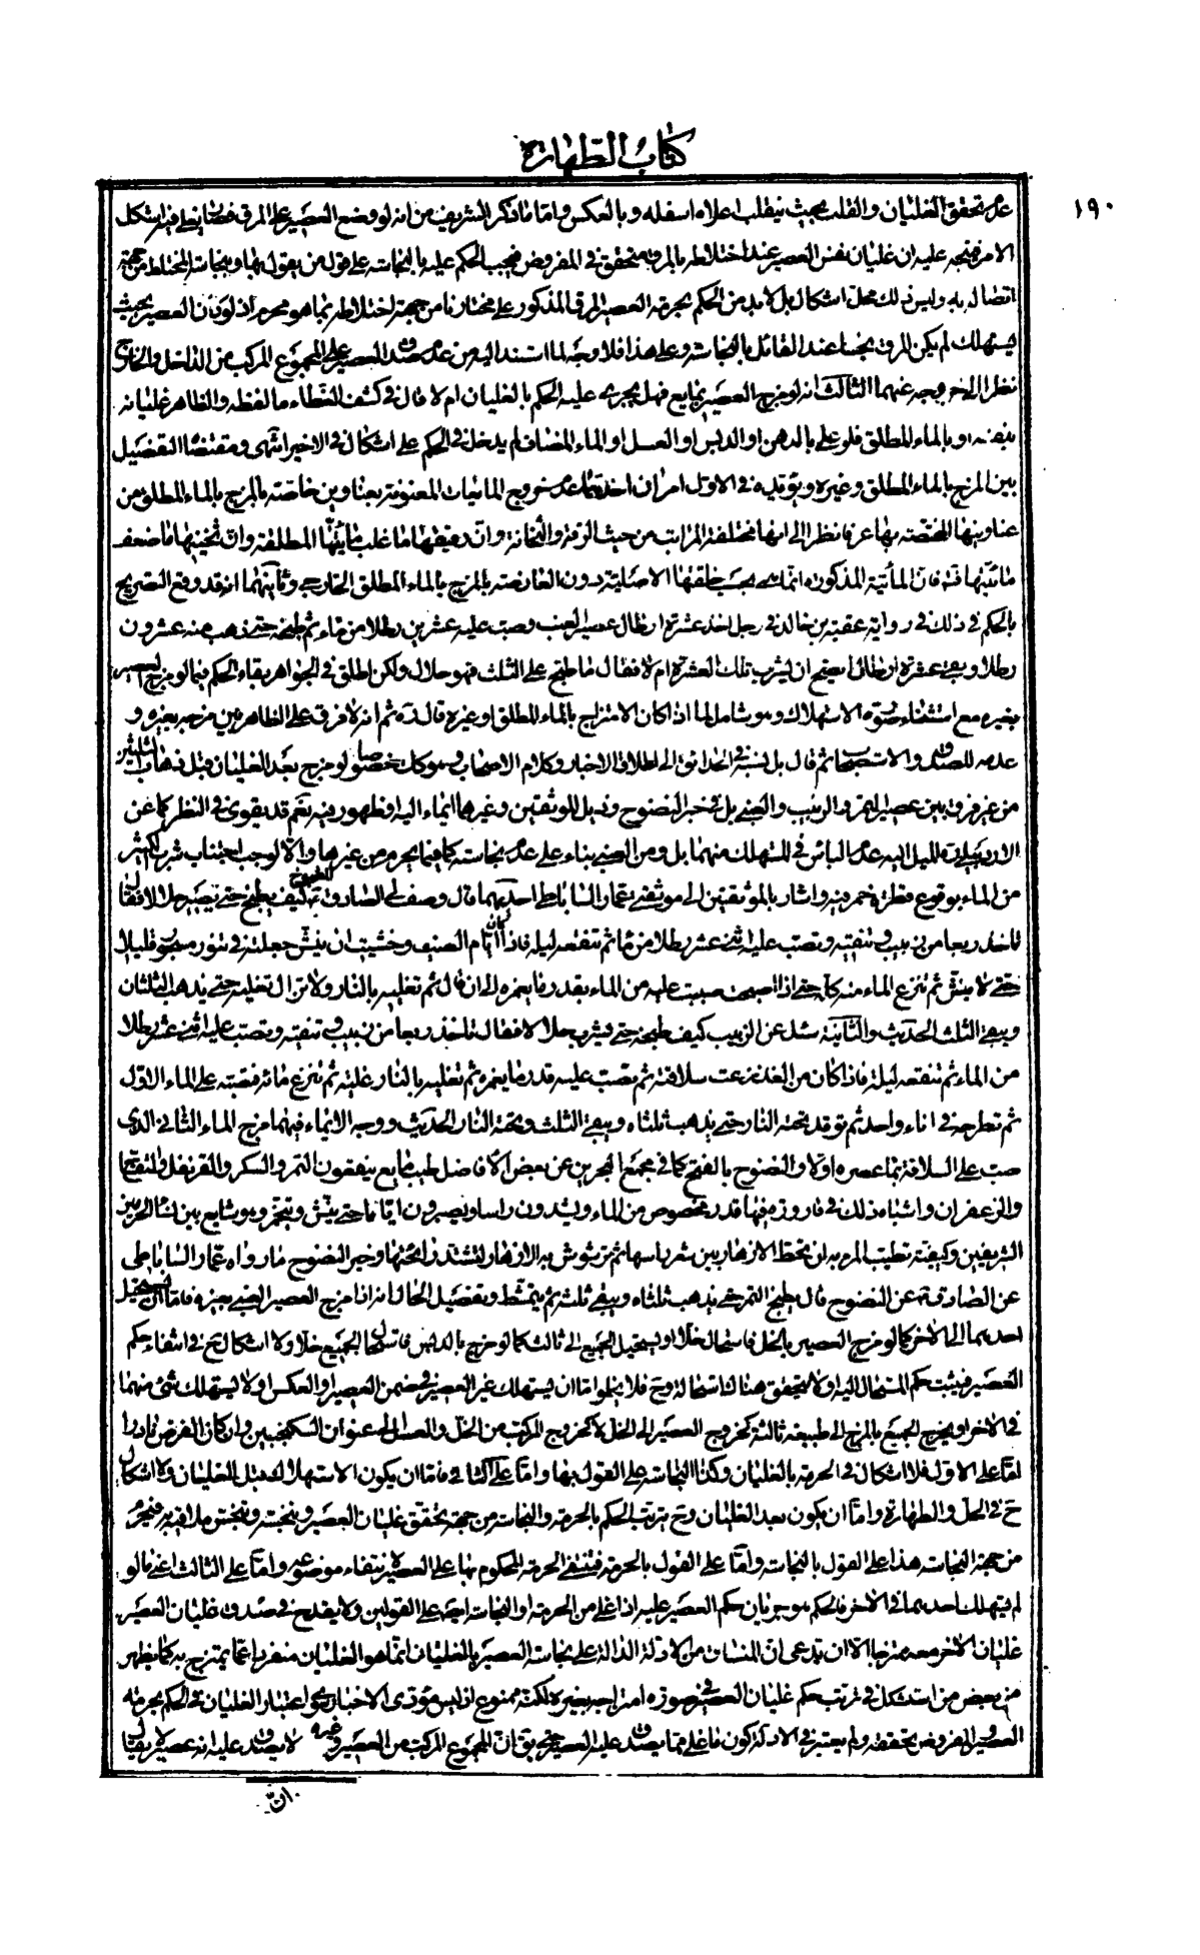 كتاب الطهارة
١٩٠
عدم تحقق الغليان والقلب بحيث ينقلب اعلاه اسفله وبالعكس واما ما ذكره الشريف من انه لو وضع العصير على المرق فصار يغلى فيه اشكل
الامر فيتجه عليه ان غليان نفس العصير عند اختلاطه بالمرق متحقق فى المفروض فيجب الحكم عليه بالنجاسة على قول من يقول بها وبنجاسة المختلط من جهة
اتصاله به وليس ذلك محل اشكال بل لا بد من الحكم بحرمة العصير والمرق المذكور على مختارنا من جهة اختلاطه بما هو محرم اذ لو كان العصير بحيث
يستهلك لم يكن المرق نجسا عند القائل بالنجاسة وعلى هذا فلا وجه لما استند اليه من عدم صدق العصير على المجموع المركب من الداخل والخارج
نظرا الى خروجه عنهما الثالث انه لو مزج العصير بمايع فهل يجرى عليه الحكم بالغليان ام لا قال فى كشف الغطاء ما لفظه والظاهر غليانه
بنفسه او بالماء المطلق فلو غلى بالدهن او الدبس او العسل او الماء المضاف لم يدخل فى الحكم على اشكال فى الاخير انتهى ومقتضاه التفصيل
بين المزج بالماء المطلق وغيره ويؤيده فى الاول امران احدهما عدم خروج المايعات المعنونة بعناوين خاصة بالمزج بالماء المطلق من
عناوينها المختصة بها عرفا نظرا الى انها مختلفة المراتب من حيث الرقة والثخانة وان رقيقها ما غلب مائيتها المطلقة وان ثخينها ما ضعف
مائيتها فيه فان المائية المذكورة انما هى بحسب خلقتها الاصلية دون العارضة بالمزج بالماء المطلق الخارجى وثانيهما انه قد وقع التصريح
بالحكم فى ذلك فى رواية عقبة بن خالد فى رجل اخذ عشرة ارطال عصير العنب وصب عليه عشرين رطلا من ماء ثم طبخه حتى ذهب منه عشرون
رطلا وبقى عشرة ارطال ايصلح ان يشرب تلك العشرة ام لا فقال ما طبخ على الثلث فهو حلال ولكن اطلق فى الجواهر بقاء الحكم فيما لو مزج العصير
بغيره مع استثناء صورة الاستهلاك وهو شامل لما اذا كان الامتزاج بالماء المطلق او غيره قال ره ثم انه لا فرق على الظاهر بين مزجه بغيره و
عدمه للصدق والاستصحاب ثم قال بل نسبه فى الحدائق الى اطلاق الاخبار وكلام الاصحاب وهو كك خصوصا لو مزج بعد الغليان قبل ذهاب الثلثين
من غير فرق بين عصير التمر والزبيب والعنب بل فى خبر النضوح وذيل الموثقين وغيرها ايماء اليه او ظهور فيه نعم قد يقوى فى النظر كما عن
الاردبيلى ره الميل اليه عدم الباس فى المستهلك منهما بل ومن العنبى بناء على عدم نجاسته كما فيما يحرم من غيرها والا لوجب اجتناب شرب الكثير
من الماء بوقوع قطرة خمر فيه واشار بالموثقين الى موثقتى عمار الساباطى احديهما قال وصف لى الصادق ع المطبوخ كيف يطبخ حتى يصير حلالا فقال
تاخذ ربعا من زبيب وتنقيه وتصب عليه اثنى عشر رطلا من ماء ثم تنقعه ليلة فاذا كان ايام الصيف وخشيت ان ينش جعلته فى تنور مسجور قليلا
حتى لا ينش ثم تنزع الماء منه كله حتى اذا اصبحت صببت عليه من الماء بقدر ما يغمره الى ان قال ثم تغليه بالنار ولا تزال تغليه حتى يذهب الثلثان
ويبقى الثلث الحديث والثانية سئل عن الزبيب كيف طبخه حتى يشرب حلالا فقال تاخذ ربعا من زبيب وتنقيه وتصب عليه اثنى عشر رطلا
من الماء ثم تنقعه ليلة فاذا كان من الغد نزعت سلافته ثم تصب عليه قدر ما يغمره ثم تغليه بالنار غلية ثم تنزع مائه فتصبه على الماء الاول
ثم تطرحه فى اناء واحد ثم توقد تحته النار حتى يذهب ثلثاه ويبقى الثلث وتحته النار الحديث ووجه الايماء فيهما مزج الماء الثانى الذى
صب على السلافة بما عصره اولا والنضوح بالفتح كما فى مجمع البحرين عن بعض الافاضل طيب مايع ينقعون التمر والسكر والقرنفل والتفاح
والزعفران واشباه ذلك فى قارورة فيها قدر مخصوص من الماء ويشدون راسها ويصبرون اياما حتى ينش ويتخمر وهو شايع بين نساء الحرمين
الشريفين وكيفية تطيب المرءة به ان تحط الازهار بين شعر راسها ثم ترشوش به الازهار لتشتد رائحتها وخبر النضوح ما رواه عمار الساباطى
عن الصادق ع عن النضوح قال يطبخ التمر حتى يذهب ثلثاه ويبقى ثلثه ثم يتمشط وتفصيل الحال انه اذا مزج العصير العنبى بغيره فاما ان يستحيل
احدهما الى الاخر كما لو مزج العصير بالخل فاستحال خلا او يستحيل الجميع الى ثالث كما لو مزج بالدبس فاستحال الجميع خلا ولا اشكال ح فى انتفاء حكم
العصير فيثبت حكم المستحال اليه او لا يتحقق هناك استحالة وح فلا يخلو اما ان يستهلك غير العصير فى ضمن العصير او العكس او لا يستهلك شئ منهما
فى الاخر او يخرج الجميع بالمزج الى طبيعة ثالثة كخروج العصير الى الخل لا كخروج المركب من الخل والعسل الى عنوان السكنجبين وان كان الفرض نادرا
اما على الاول فلا اشكال فى الحرمة بالغليان وكذا النجاسة على القول بها واما على الثانى فاما ان يكون الاستهلاك قبل الغليان ولا اشكال
ح فى الحل والطهارة واما ان يكون بعد الغليان وح يترتب الحكم بالحرمة والنجاسة من جهة تحقق غليان العصير وينجسه وتنجس ملاقيه فيحرم
من جهة النجاسة هذا على القول بالنجاسة واما على القول بالحرمة فتنتفى الحرمة المحكوم بها على العصير لانتفاء موضوعه واما على الثالث اعنى ما لو
لم يستهلك احدهما فى الاخر فالحكم هو جريان حكم العصير عليه اذا غلى من الحرمة او النجاسة ايضا على القولين ولا يقدح فى صدق غليان العصير
غليان الاخر معه ممتزجا الا ان يدعى ان المنساق من الادلة الدالة على نجاسة العصير بالغليان انما هو الغليان منفردا عما يمتزج به كما يظهر
من بعض من استشكل فى ترتب حكم غليان العصير فى صورة امتزاجه بغيره لكنه ممنوع اذ ليس مؤدى الاخبار سوى اعتبار الغليان فى الحكم بحرمة
العصير والمفروض تحققه ولم يعتبر فى الادلة كون ما غلى مما يصدق عليه العصير حتى يق ان المجموع المركب من العصير وغيره لا يصدق عليه انه عصير لا يقال
ان